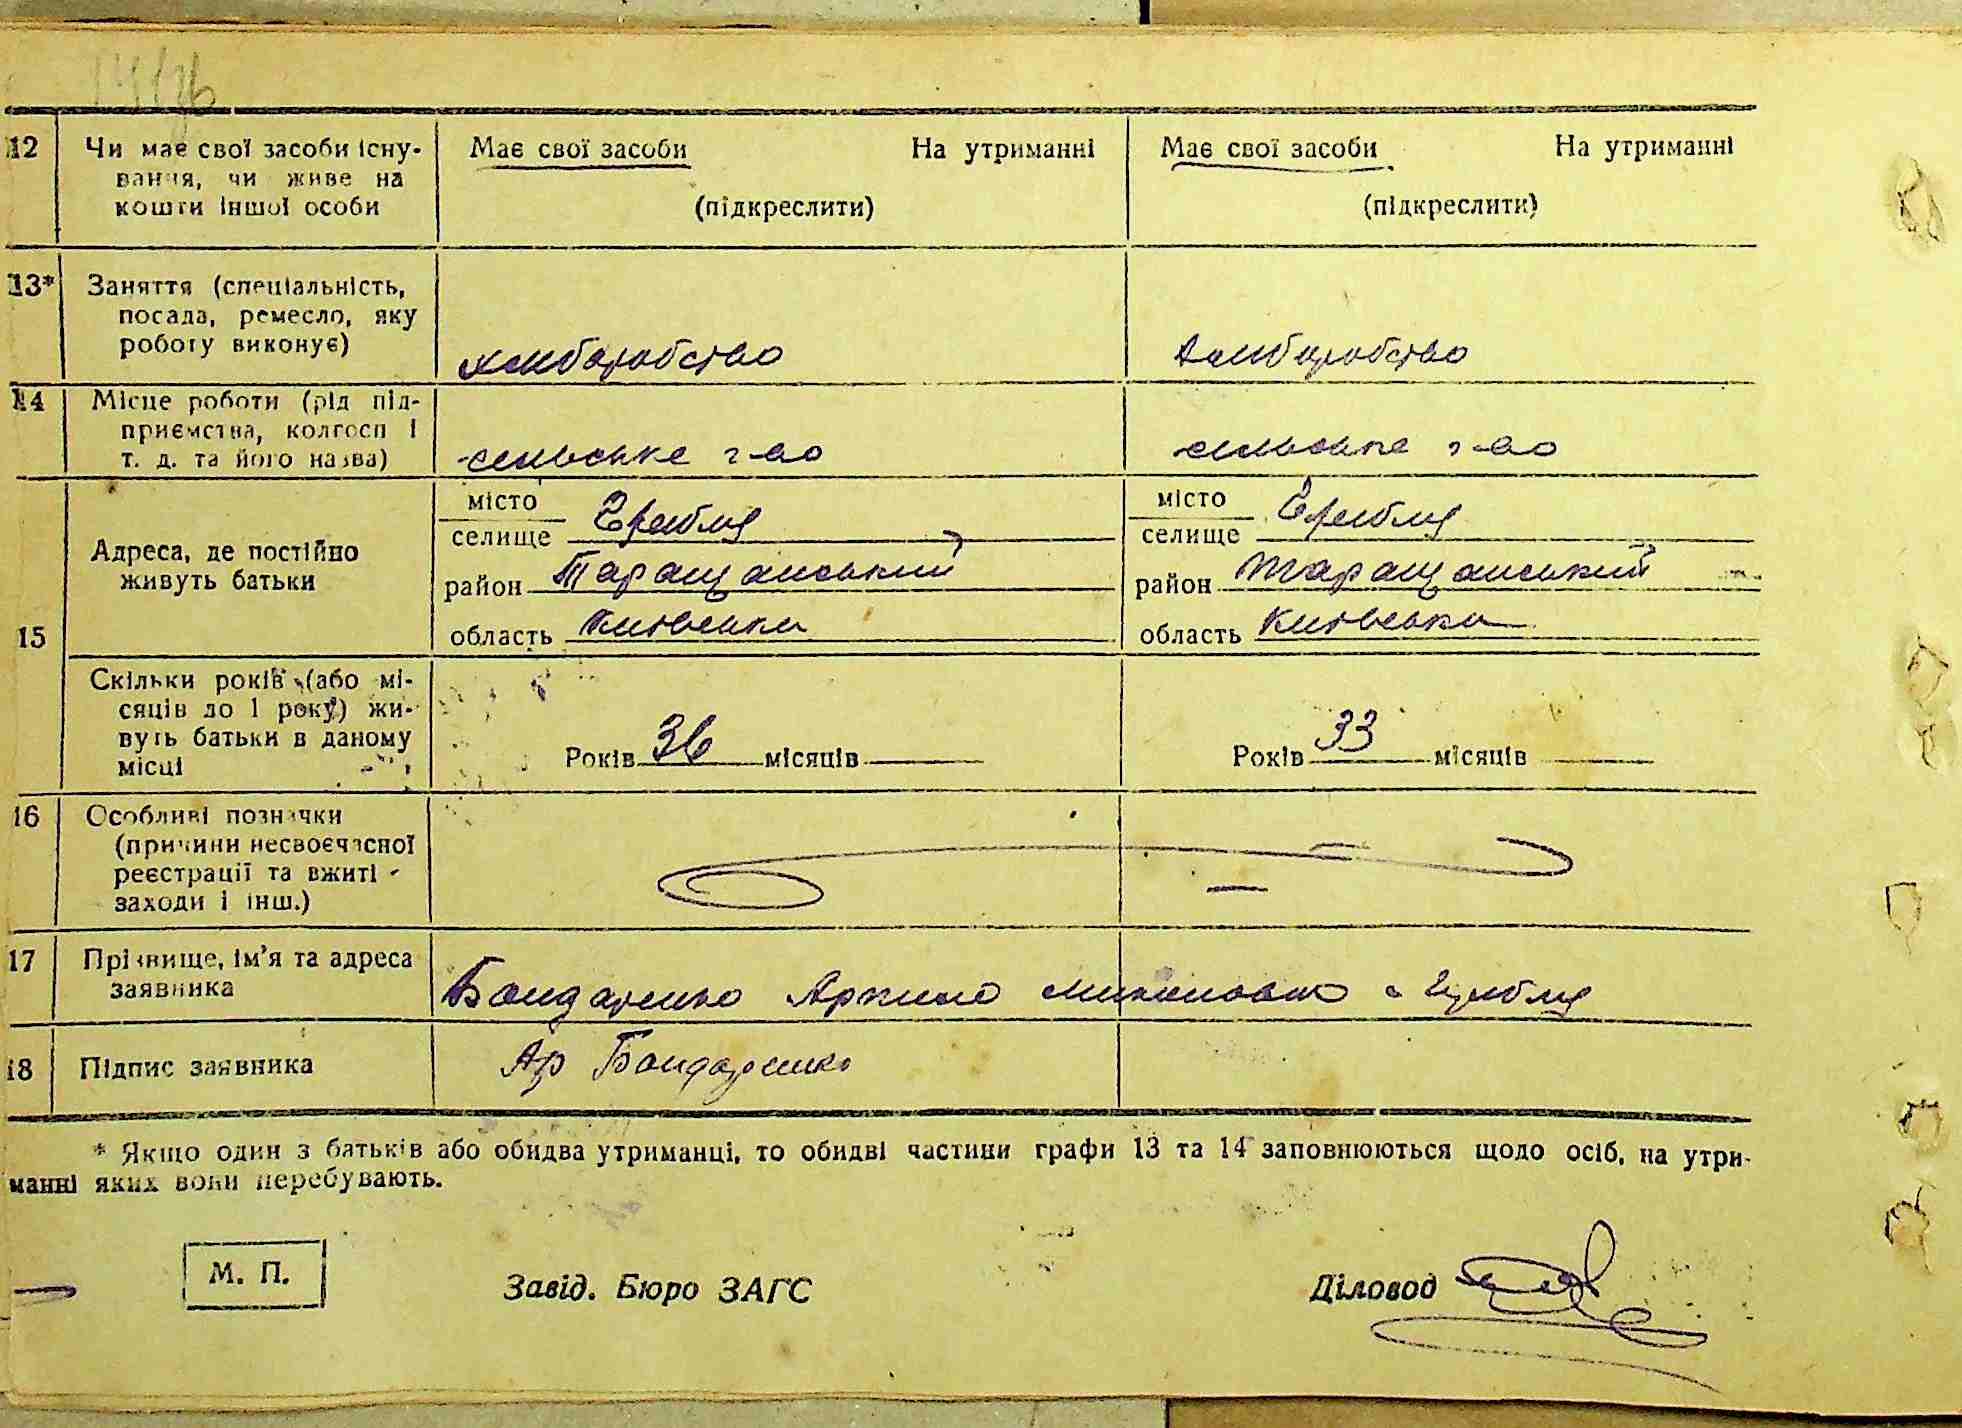 12 Чи має свої засоби існу- Має свої засоби На утриманні Має свої засоби На утриманні
вання, чи живе на
кошти іншої особи (підкреслити) (підкреслити)
13* Заняття (спеціальність,
посада, ремесло, яку
роботу виконує) хліборобство хліборобство
14 Місце роботи (рід під-
приємства, колгосп і
т. д. та його назва) сельське г-во сельське г-во
15 Адреса, де постійно
живуть батьки
місто місто
селище Гребля селище Гребля
район Таращанський район Таращанський
область Київська область Київська
Скільки років (або мі-
сяців до 1 року) жи-
вуть батьки в даному
місці Років 36 місяців Років 33 місяців
16 Особливі позначки
(причини несвоєчасної
реєстрації та вжиті
заходи і інш.) —
17 Прізвище, ім'я та адреса
заявника Бондаренко с Гребля
18 Підпис заявника Ар Бондаренко
* Якщо один з батьків або обидва утриманці, то обидві частини графи 13 та 14 заповнюються щодо осіб, на утри-
манні яких вони перебувають.
М. П. Завід. Бюро ЗАГС Діловод